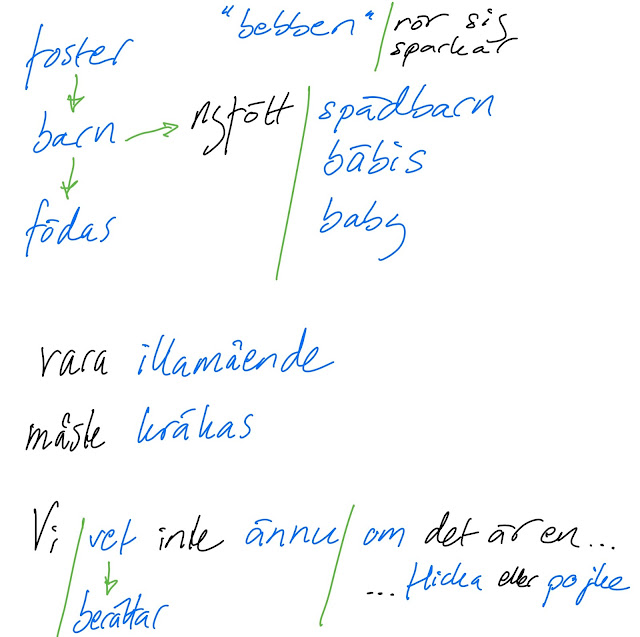 "bebben" / rör sig
sparkar
foster
↓
barn → nyfött / spädbarn
bäbis
baby
↓
födas
vara illamående
måste kräkas
Vi / vet inte ännu / om det är en...
↓
... flicka eller pojke
berättar